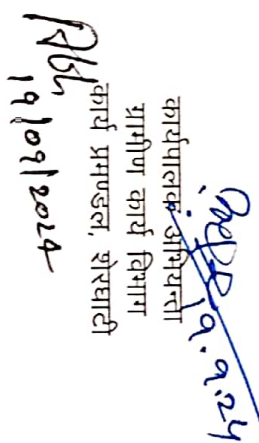 19.9.24
कार्यपालक अभियन्ता
ग्रामीण कार्य विभाग
कार्य प्रमण्डल, शेरघाटी
19/09/2024